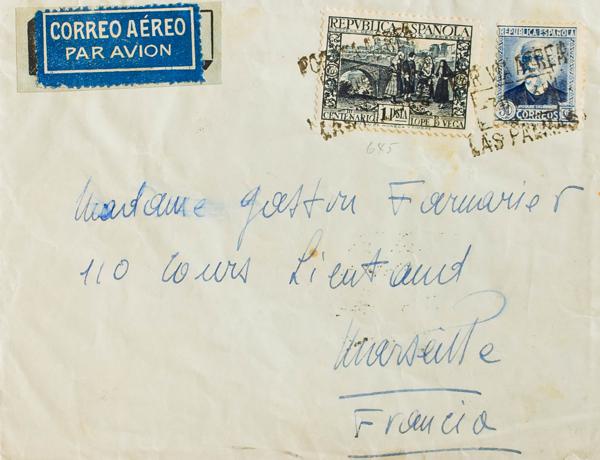 CORREO AÉREO
PAR AVION
REPVBLICA ESPAÑOLA
CENTENARIO 1 PSTA LOPE D VEGA
REPUBLICA ESPAÑOLA
CORREOS
POR VIA AEREA
LAS PALMAS
645
Madame Gaston Farnarier
110 Cours Lieutaud
Marseille
Francia